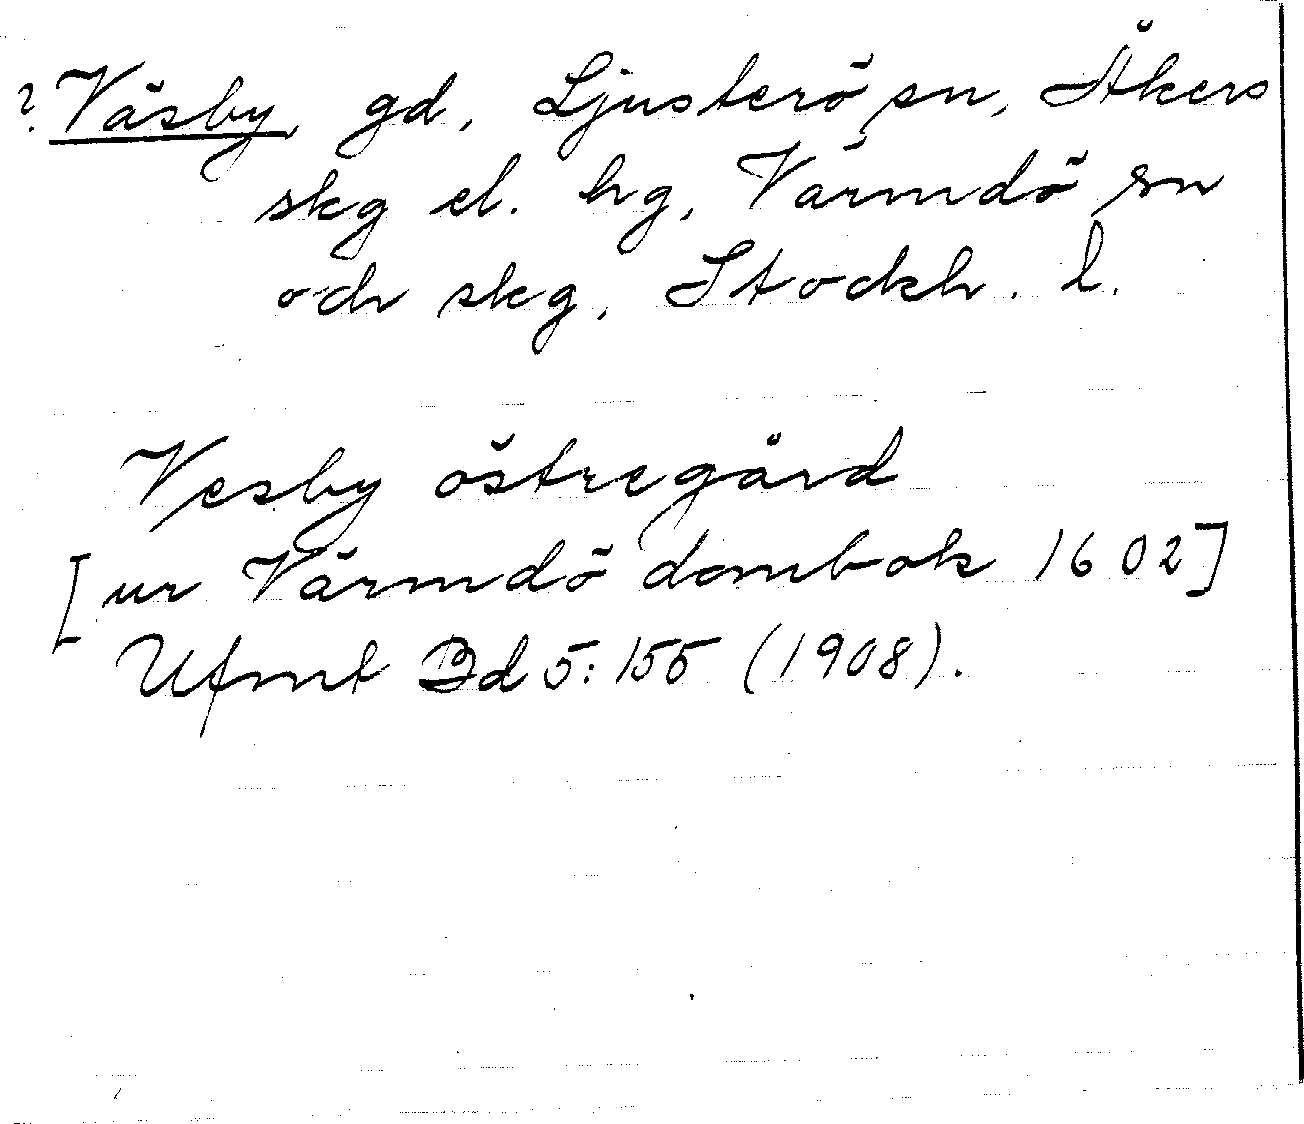 ? Väsby, gd, Ljusterö sn, Åkers
skg el. hg, Värmdö sn
och skg, Stockh. l.
Vesby östregård
[ur Värmdö dombok 1602]
Ufmt Bd 5:155 (1908).